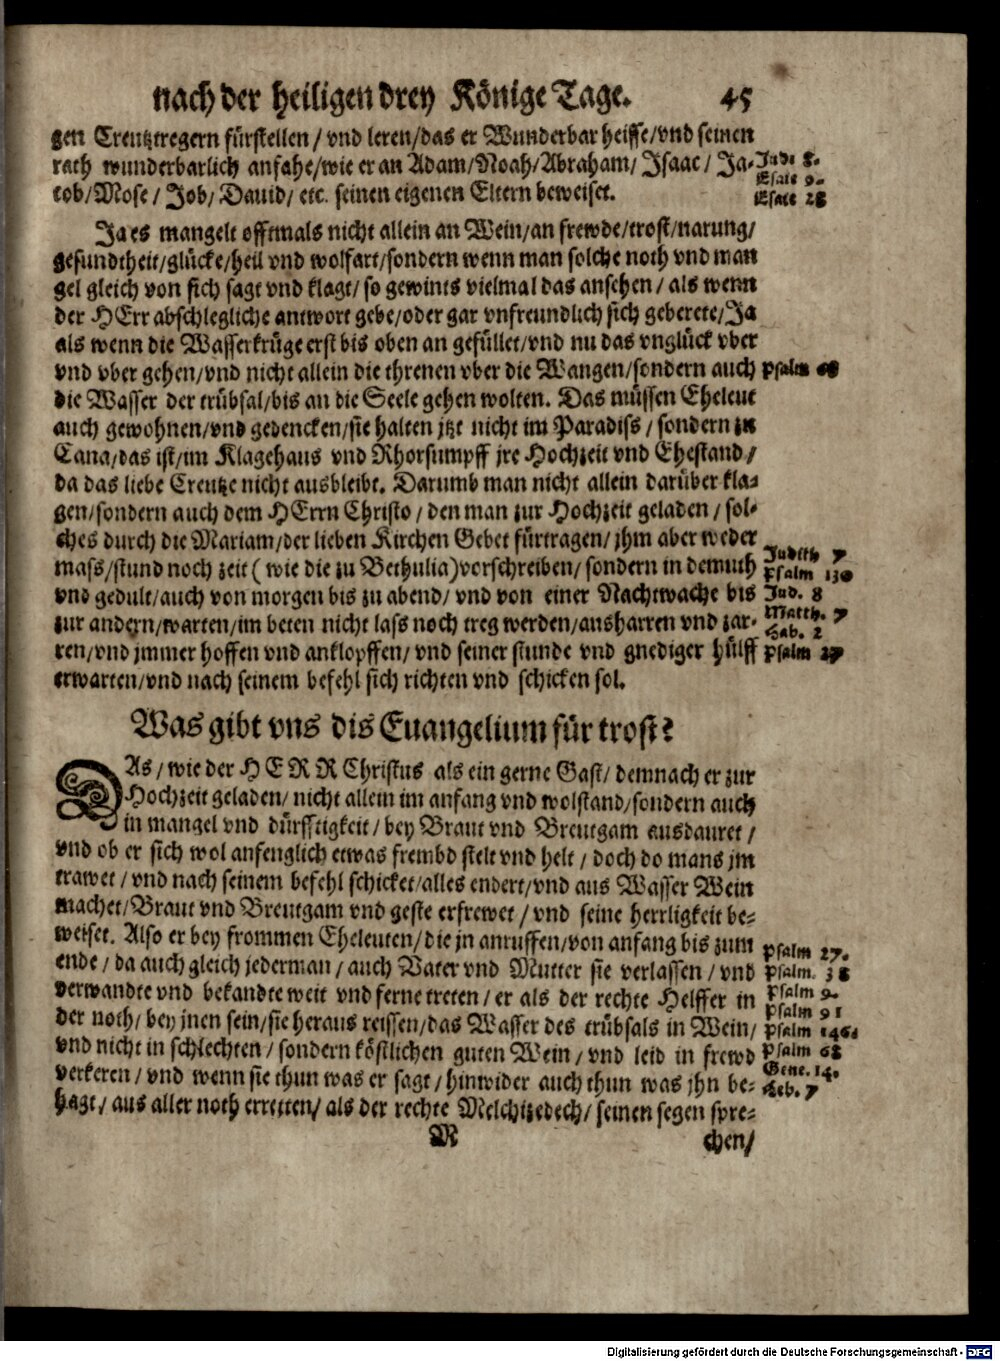 nach der heiligen drey Könige Tage. 45
gen Creutztregern fürstellen / vnd leren/das er Wunderbar heisse/vnd seinen
rath wunderbarlich anfahe/wie er an Adam/Noah/Abraham/ Isaac / Ja-
cob/Mose / Job/ Dauid/ etc. seinen eigenen Eltern beweiset.
Esaie 9.
Esaie 28
Ja es mangelt offtmals nicht allein an Wein/an frewde/trost/narung/
gesundtheit/glücke/heil vnd wolfart/sondern wenn man solche noth vnd man
gel gleich von sich sagt vnd klagt/ so gewints vielmal das ansehen / als wenn
der HErr abschlegliche antwort gebe/oder gar vnfreundlich sich geberete/Ja
als wenn die Wasserkrüge erst bis oben an gefüllet/vnd nu das vnglück vber
vnd vber gehen/vnd nicht allein die threnen vber die Wangen/sondern auch
Psalm
die Wasser der trübsal/bis an die Seele gehen wolten. Das müssen Eheleut
auch gewohnen/vnd gedencken/sie halten jtzt nicht im Paradiss / sondern zu
Cana/das ist/im Klagehaus vnd Rhorsumpff jre Hochzeit vnd Ehestand /
da das liebe Creutze nicht ausbleibt. Darumb man nicht allein darüber kla-
gen/sondern auch dem HErrn Christo / den man zur Hochzeit geladen / sol-
ches durch die Mariam/der lieben Kirchen Gebet fürtragen/ jhm aber weder
mass/stund noch zeit ( wie die zu Bethulia)vorschreiben/ sondern in demuth
vnd gedult/auch von morgen bis zu abend/ vnd von einer Nachtwache bis
zur andern/warten/im beten nicht lass noch treg werden/ausharren vnd zar-
ren/vnd jmmer hoffen vnd anklopffen/ vnd seiner stunde vnd gnediger hülff
erwarten/vnd nach seinem befehl sich richten vnd schicken sol.
Judith 7
Psalm 130
Jud. 8
Matth. 7
Hab. 2
Psalm 27
Was gibt vns dis Euangelium für trost?
DAs / wie der HERR Christus als ein gerne Gast/ demnach er zur
Hochzeit geladen/ nicht allein im anfang vnd wolstand/sondern auch
in mangel vnd dürfftigkeit / bey Braut vnd Breutgam ausdauret /
vnd ob er sich wol anfenglich etwas frembd stelt vnd helt / doch do mans jm
trawet / vnd nach seinem befehl schicket/alles endert/vnd aus Wasser Wein
machet/Braut vnd Breutgam vnd geste erfrewet / vnd seine herrligkeit be-
weiset. Also er bey frommen Eheleuten/die jn anruffen/von anfang bis zum
ende / da auch gleich jederman / auch Vater vnd Mutter sie verlassen / vnd
verwandte vnd bekandte weit vnd ferne treten / er als der rechte Helffer in
der noth/ bey jnen sein/sie heraus reissen/das Wasser des trübsals in Wein/
vnd nicht in schlechten / sondern köstlichen guten Wein / vnd leid in frewd
verkeren / vnd wenn sie thun was er sagt / hinwider auch thun was jhn be-
hagt / aus aller noth erretten/ als der rechte Melchizedech/ seinen segen spre-
Psalm 27.
Psalm. 38
Psalm 9.
Psalm 91
Psalm 146.
Psalm 68
Gene. 14.
Heb. 7
M chen/
Digitalisierung gefördert durch die Deutsche Forschungsgemeinschaft - DFG